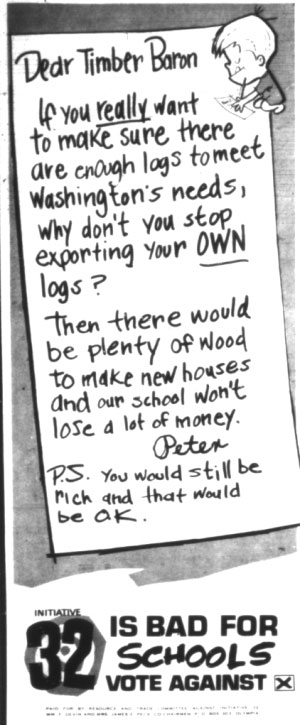 Dear Timber Baron
If you really want
to make sure there
are enough logs to meet
Washington's needs,
why don't you stop
exporting your OWN
logs?
Then there would
be plenty of wood
to make new houses
and our school won't
lose a lot of money.
Peter
P.S. You would still be
rich and that would
be OK.
INITIATIVE
32
IS BAD FOR
SCHOOLS
VOTE AGAINST
PAID FOR BY RESOURCE AND TRADE COMMITTEE AGAINST INITIATIVE 32